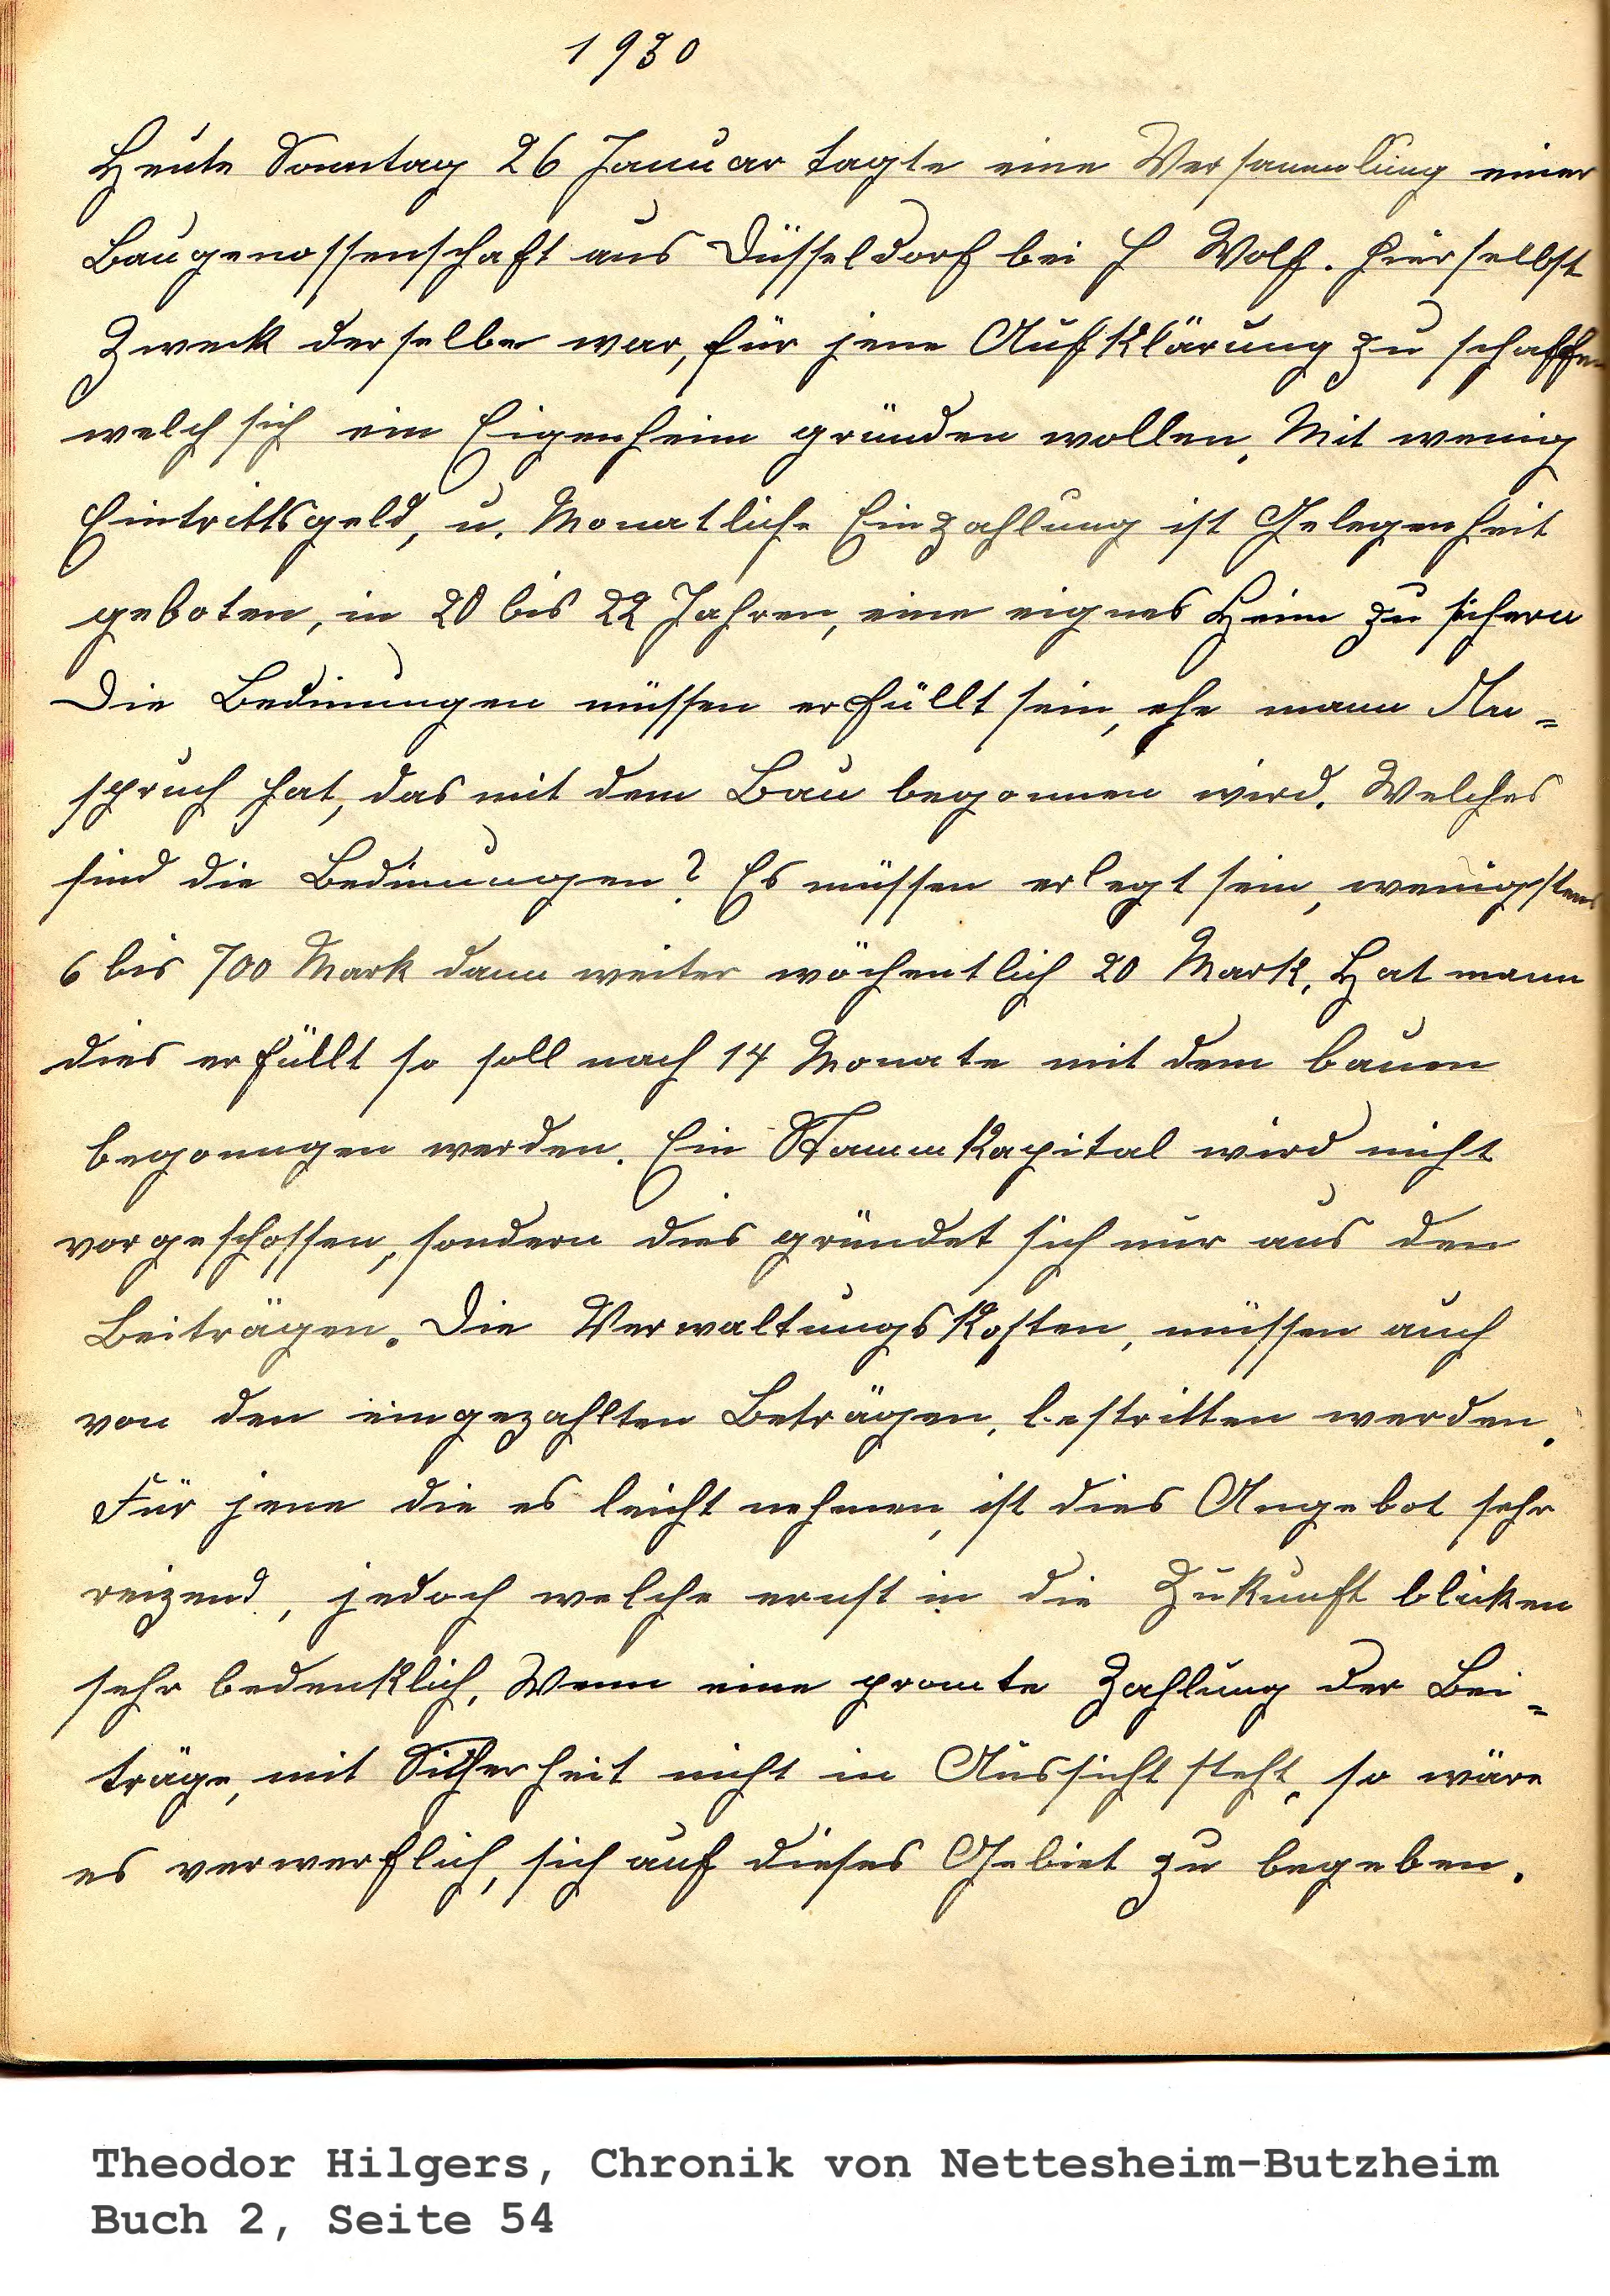 1930
Heute Sonntag 26 Januar tagte eine Versammlung einer
Baugenossenschaft aus Düsseldorf bei H Wolf. hierselbst
Zweck derselbe war, für jene Aufklärung zu schaffen
welch sich ein Eigenheim gründen wollen. Mit wenig
Eintrittsgeld, u. Monatliche Einzahlung ist Gelegenheit
geboten, in 20 bis 22 Jahren, eine eignes Heim zu sichern
Die Bedinungen müssen erfüllt sein, ehe mann An=
spruch hat, das mit dem Bau begonnen wird. Welches
sind die Bedinungen? Es müssen erlegt sein, wenigstens
6 bis 700 Mark dann weiter wöchentlich 20 Mark. Hat mann
dies erfüllt so soll nach 14 Monate mit dem bauen
begonngen werden. Ein Stammkapital wird nicht
vorgeschossen, sondern dies gründet sich nur aus den
Beiträgen. Die Verwaltungskosten, müssen auch
von den eingezahlten Beträgen, bestritten werden.
Für jene die es leicht nehmen, ist dies Angebot sehr
reizend, jedoch welche ernst in die Zukunft blicken
sehr bedenklich. Wenn eine promte Zahlung der Bei=
träge, mit Sicherheit nicht in Aussicht steht, so wäre
es verwerflich, sich auf dieses Gebiet zu begeben.
Theodor Hilgers, Chronik von Nettesheim-Butzheim
Buch 2, Seite 54